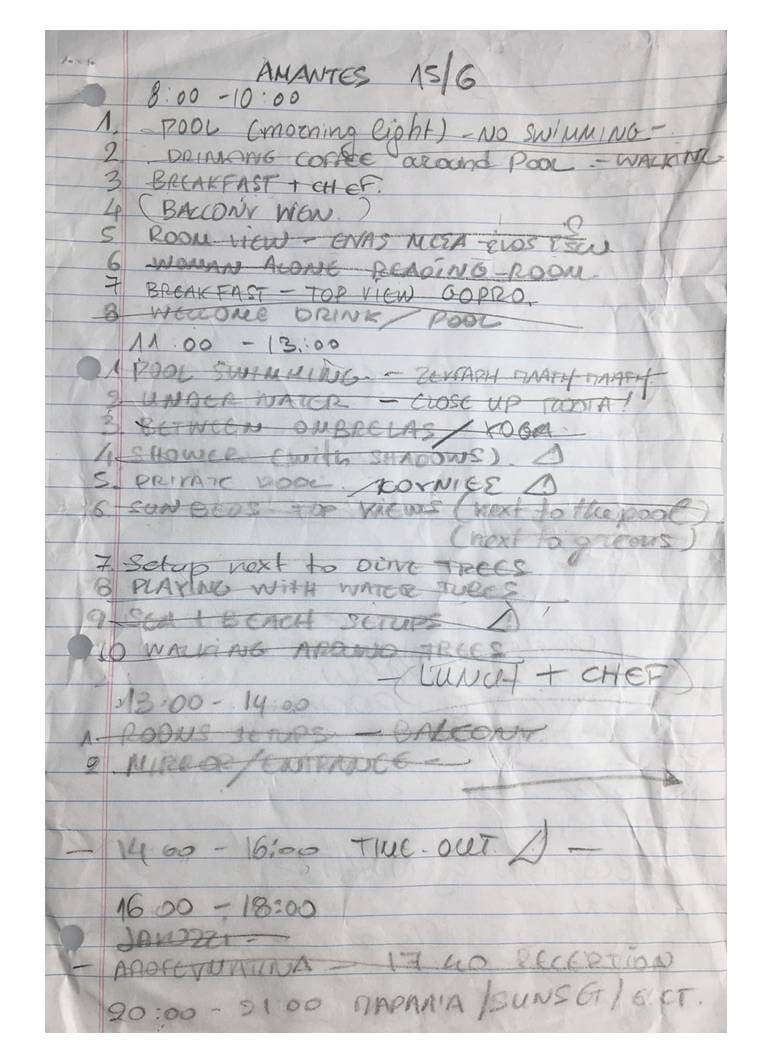 AMANTES 15/6
8:00 - 10:00
1. POOL (morning light) - NO SWIMMING -
2 DRINKING COFFEE around POOL - WALKING
3 BREAKFAST + CHEF.
4 (BALCONY VIEW)
5 ROOM VIEW - ENAS ΜΕΣΑ - ENOS ΕΞΩ
6 WOMAN ALONE READING - ROOM.
7 BREAKFAST - TOP VIEW GOPRO.
8 WELCOME DRINK / POOL
11.00 - 13:00
1 POOL SWIMMING - ΖΕΥΓΑΡΗ ΠΛΑΤΗ ΠΛΑΤΗ
2 UNDER WATER - CLOSE UP !
3 BETWEEN OMBRELAS / YOGA
4. SHOWER (with SHADOWS).
5. PRIVATE POOL /
6. SUN BEDS TOP VIEWS (next to the pool)
(next to )
7. Setup next to OLIVE TREES
8 PLAYING WITH WATER TUBES
9 SEA + BEACH SETUPS
10 WALKING AROUND TREES
- (LUNCH + CHEF)
13:00 - 14:00
1. ROOMS SETUPS - BALCONY
2 MIRROR / ENTRANCE -
- 14 00 - 16:00 TIME-OUT -
16 00 - 18:00
JAKUZZI -
- - 17 40 RECEPTION
20:00 - 21 00 ΠΑΡΑΛΙΑ / SUNSET / ECT.